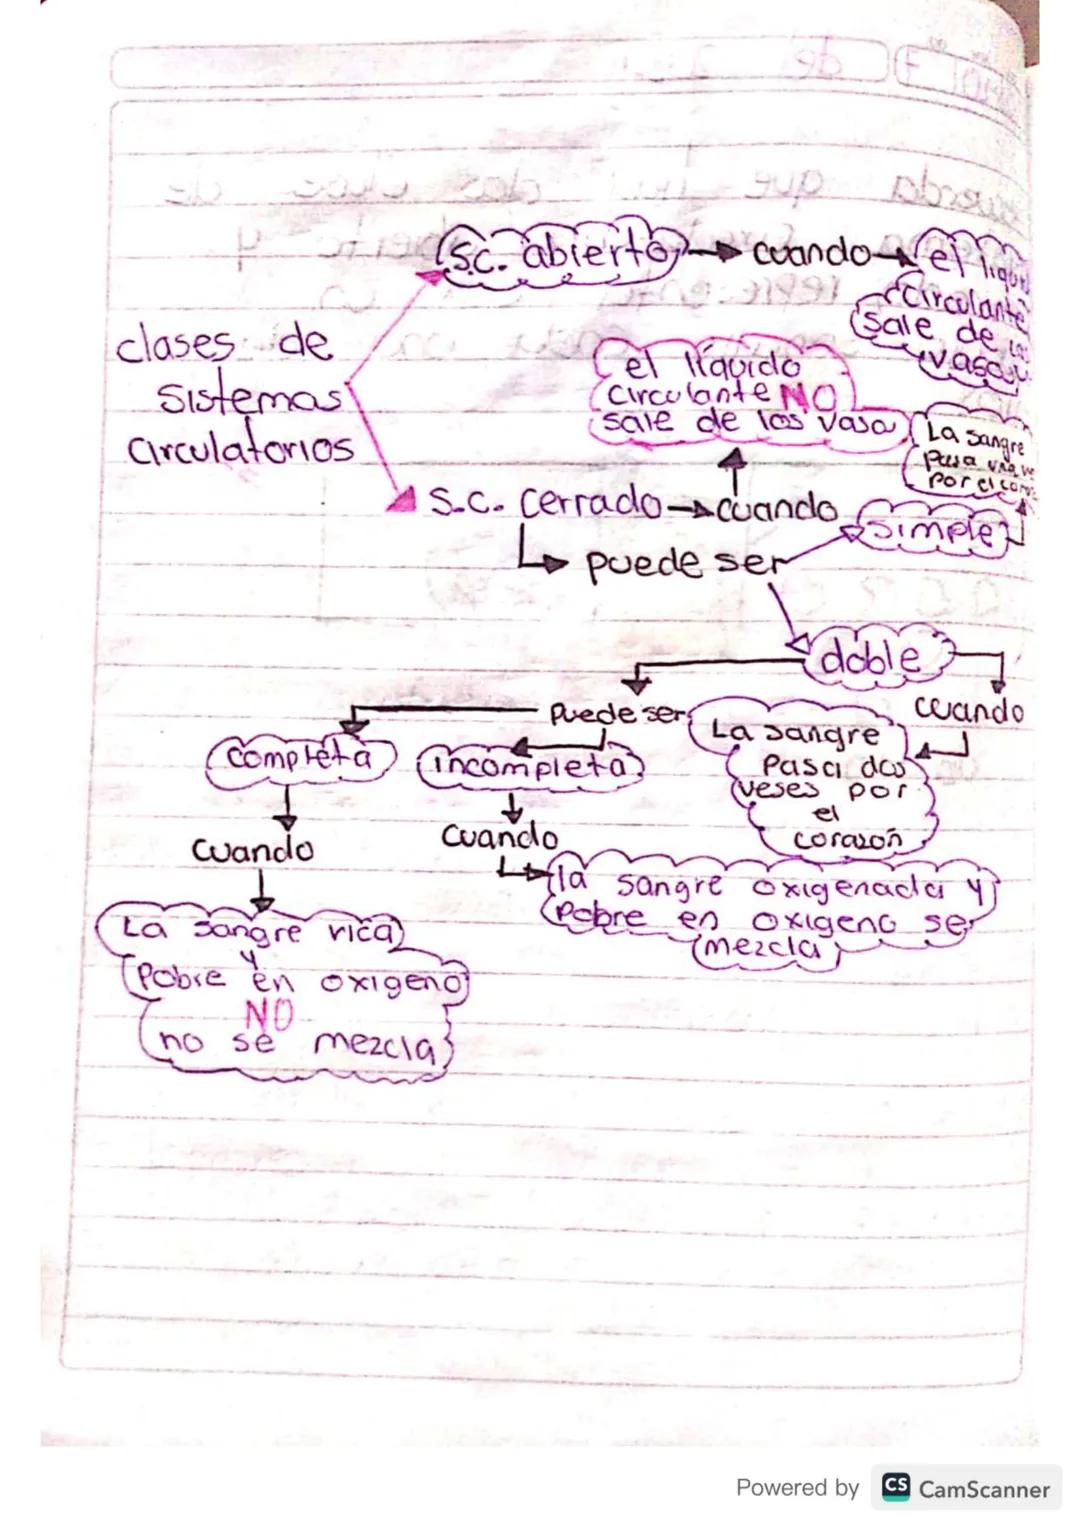 s.c. abierto cuando el liqui
circulante
sale de las
vaso
clases de
sistemas
circulatorios
el líquido
circulante NO
sale de los vasa
La sangre
pasa una ve
por el cora
s.c. cerrado cuando
simple
puede ser
doble
puede ser
cuando
La sangre
pasa dos
veses por
el
corazón
completa
incompleta
cuando
cuando
la sangre oxigenada y
pobre en oxigeno se
mezcla
La sangre rica
y
pobre en oxigeno
NO
no se mezcla
Powered by CS CamScanner